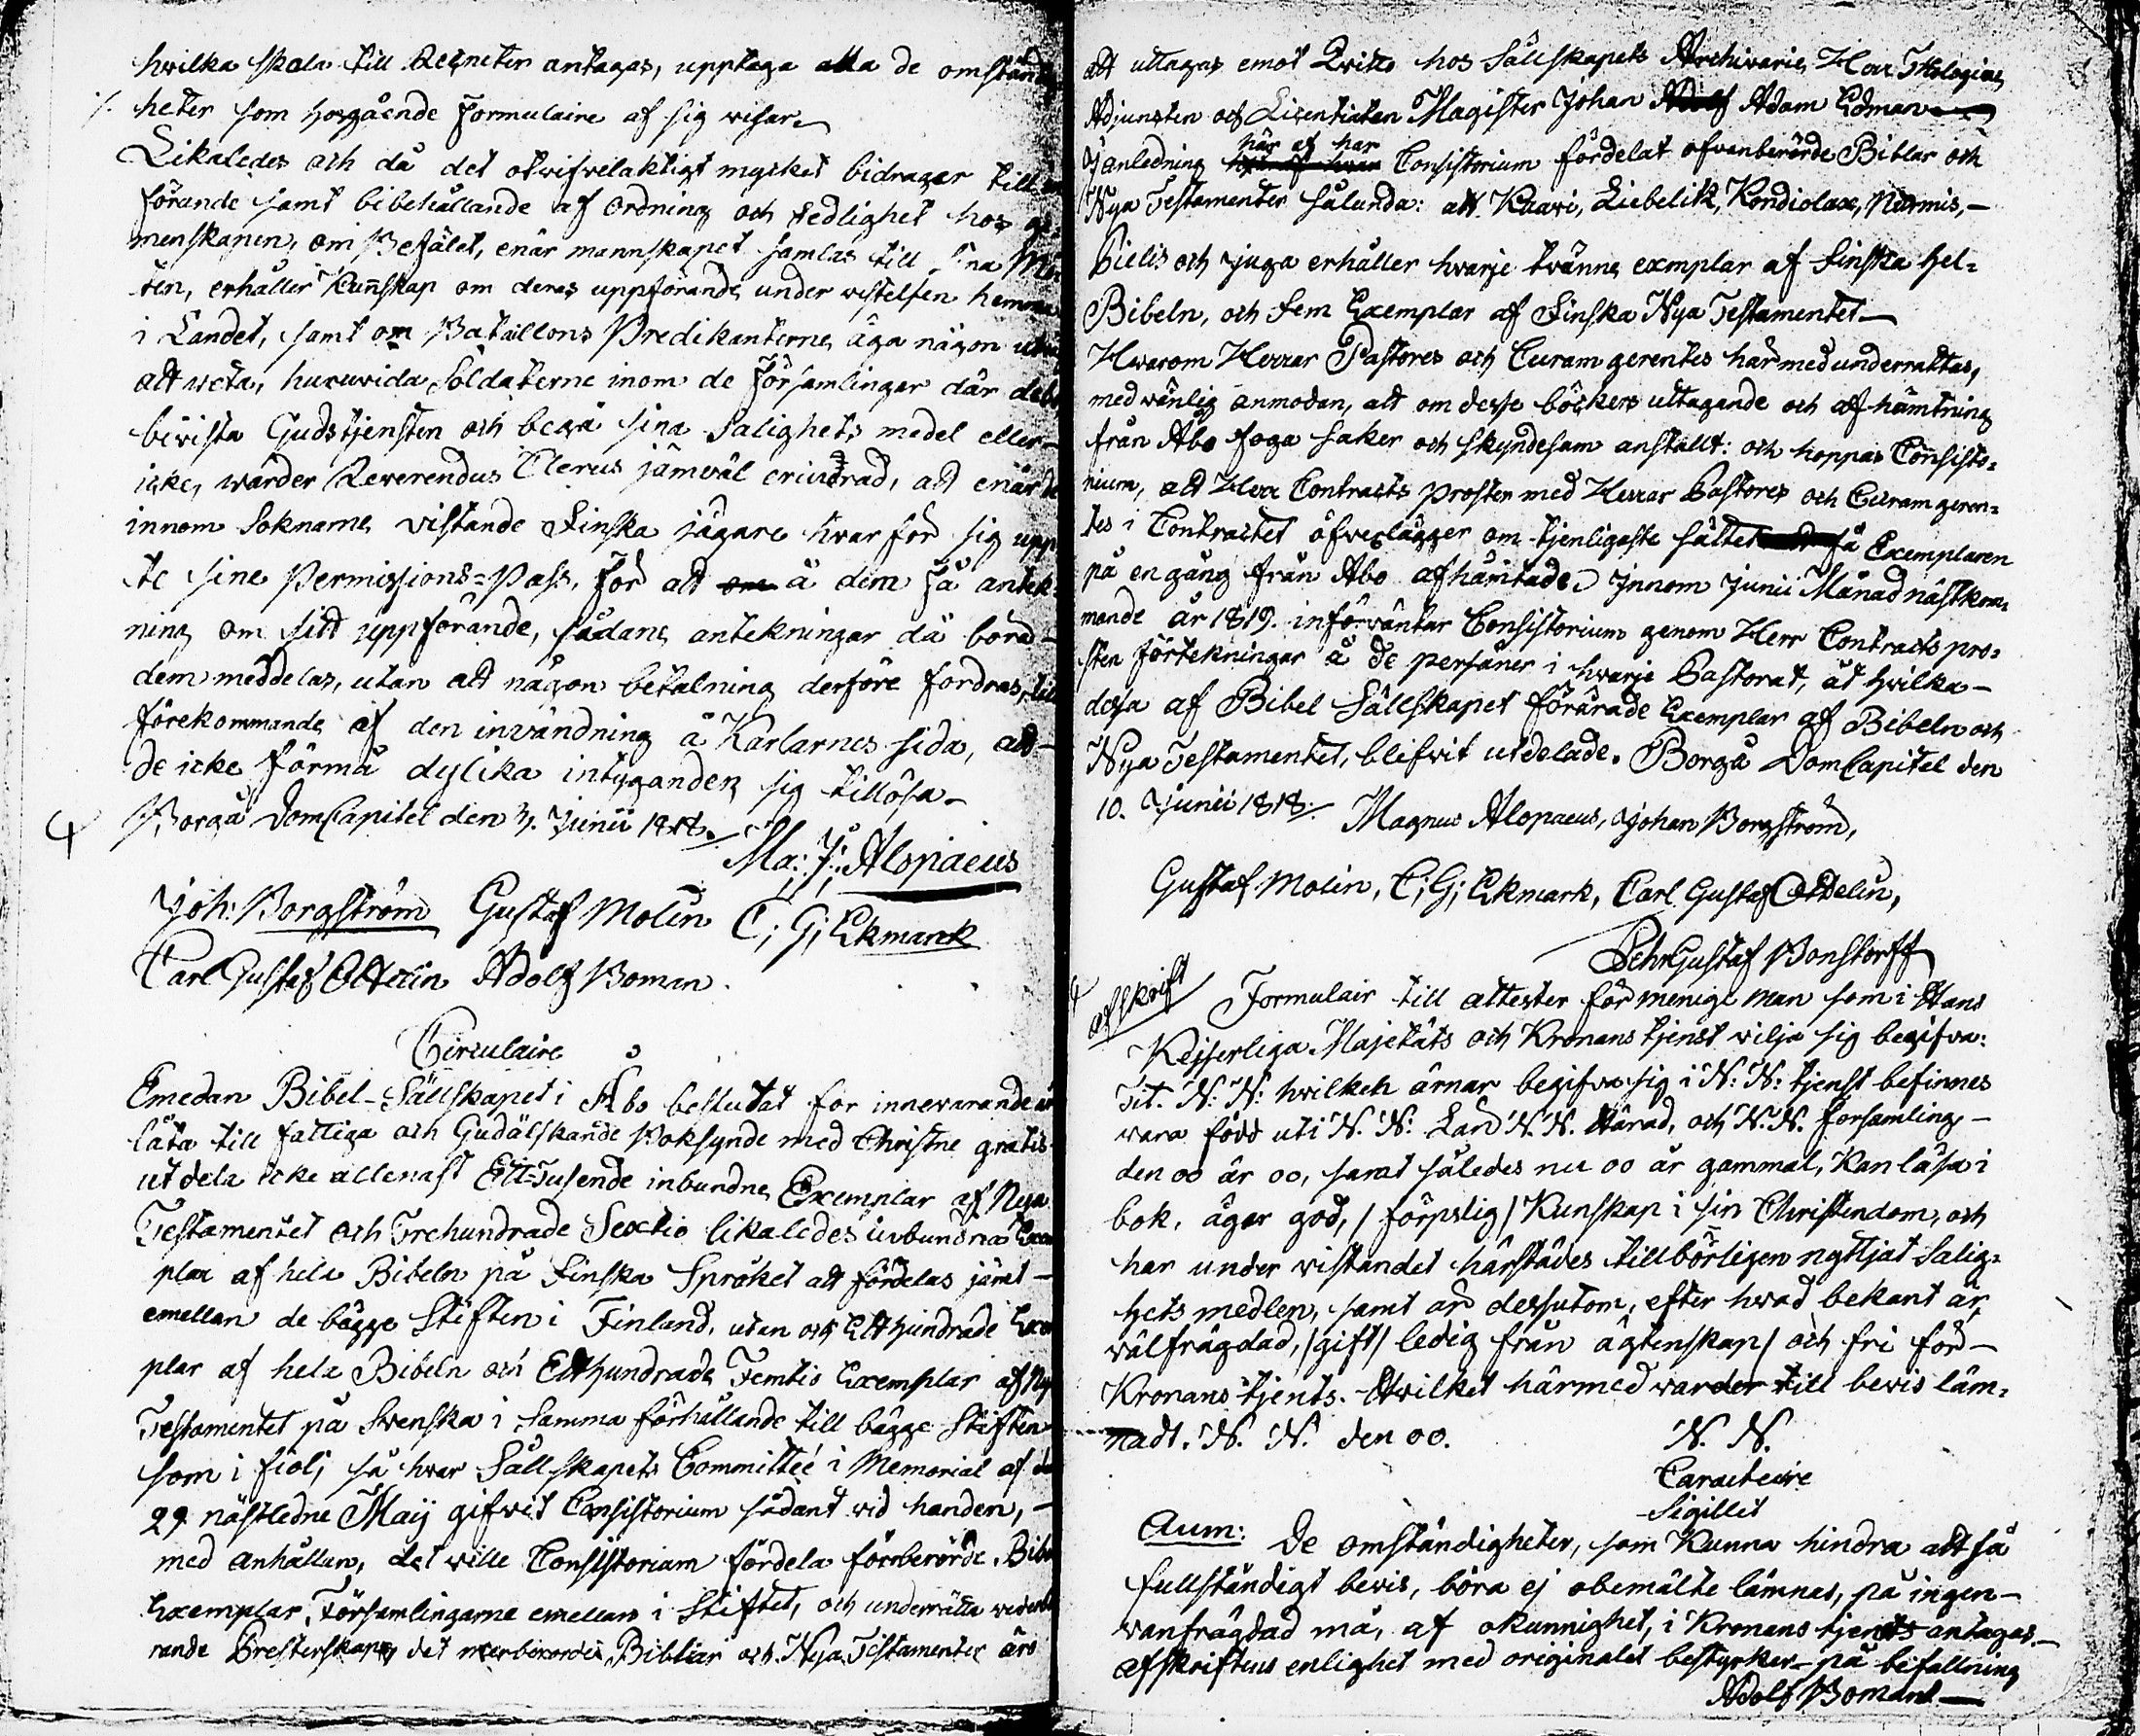 hwilka skola till Regneten antagas, upptaga alla de omständig
heter som hosgående Formulaire af sig wisar.
Likaledes och då det otwifvelaktigt mycket bidrager till
förande samt bibehållande af ordning och sedlighet hos ge-
menskapen, om Befälet, enär mannskapet samlas till sina Mö
ten, erhåller kunskap om deras uppförande under vistelsen hemma
i Landet, samt om Bataillons Predikanterne äga någon
att weta, huruvida Soldaterne inom de Församlingar där de
bivista Gudstjensten och begå sina Salighets medel eller
icke, warder Reverendus Clerus jämväl erindrad, att enär de
innom Soknarne vistande Finska jägare hvar för sig upp
te sine Permissions=Pass, för att å dem få antek-
ning om sitt uppförande, sådane antekningar då böra
dem meddelas, utan att någon betalning derföre fordras, till
förekommande af den invändning å Karlarnes sida, att
de icke förmå dylika intyganden sig tillösa.
Borgå DomCapitel den 3. Junii 1818.
Ma: J: Alopaeus
Joh: Borgström Gustaf Molin C; G; Ekmark
Carl Gustaf Ottelin Adolf Boman.
Circulaire
Emedan Bibel-Sällskapet i Åbo beslutat för innevarande år
låta till fattiga och Gudälskande Boksynde med Christne gratis
utdela icke allenast Ett=Tusende inbundne Exemplar af Nya
Testamentet och Trehundrade Sextio likaledes inbundna Exem
plar af hela Bibeln på Finska Språket att fördelas jämt
emellan de bägge Stiften i Finland, utan och Etthundrade Exem
plar af hela Bibeln och Etthundrade Femtio Exemplar af Nya
Testamentet på Svenska i samma förhållande till bägge Stiften
som i fiol; så hvar Sällskapets Committée i Memorial af den
29 nästledne Maij gifwit Consistorium sådant vid handen,
med anhållan, det wille Consistorium fördela förrberörde Bibel
Exemplar, Församlingarne emellan i Stiftet, och underrätta vederbö
rande Presterskap det merberörde Biblar och Nya Testamenter äro
att uttagas emot Qvitto hos Sällskapets Archivarie, Herr Theologiae
Adjuncten och Licentiaten Magister Johan Adam Edman
I anledning här af har Consistorium fördelat ofvanberörde Biblar och
Nya Testamenter sålunda: att Kaavi, Liebelitz, Kondiolax, Nurmis,
Pielis och Juga erhåller hvarje tvänne exemplar af Finska hel=
Bibeln, och fem Exemplar af Finska Nya Testamentet
Hwarom Herrar Pastores och Curam gerentes härmed underrättas,
med vänlig anmodan, att om desse böckers uttagande och afhämtning
från Åbo foga säker och skyndesam anstallt: och hoppas Consisto=
rium, att Herr Contracts Prosten med Herrar Pastores och Curam geren=
tes i Contractet öfverlägger om tjenligaste sättet få Exemplaren
på en gång från Abo afhämtade. Innom Junii Månad nästkom=
mande år 1819. införväntar Consistorium genom Herr Contracts pro=
sten förtekningar å de personer i hwarje Pastorat, åt hvilka
dessa af Bibel Sällskapet förärade Exemplar af Bibeln och
Nya Testamentet, blifvit utdelade. Borgå DomCapitel den
10. Junii 1818. Magnus Alopaeus, Johan Borgström,
Gustaf Molin, C; G; Ekmark, Carl Gustaf Ottelin,
Pehr Gustaf Bonstorff
afskrift
Formulair till attester för menige man som i Hans
Kejserliga Majetäts och Kronans tjenst vilja sig begifva:
Tit. N: N: hvilken ärnar begifva sig i N: N: tjenst befinnes
wara född uti N. N: Län N. N. Härad, och N. N. Församling
den 00 år 00, samt således nu 00 år gammal, kan läsa i
bok, äger god, / förpslig / Kunskap i sin Christendom, och
har under vistandet härstädes tillbörligen nyttjat Salig=
hets medlen, samt är dessutom, efter hvad bekant är,
välfrägdad, / gift / ledig från ägtenskap / och fri för
Kronans tjents. Hwilket härmed warder till bevis läm=
nadt. N. N. den 00.
N. N.
Caracteire
Sigillet
Anm: De omständigheter, som kunna hindra att få
fullständigt bevis, böra ej obemälte lämnas, på ingen
vanfrägdad må, af okunnighet, i Kronans tjents antagas.
afskriftens enlighet med originalet bestyrker på befallning
Adolf Boman